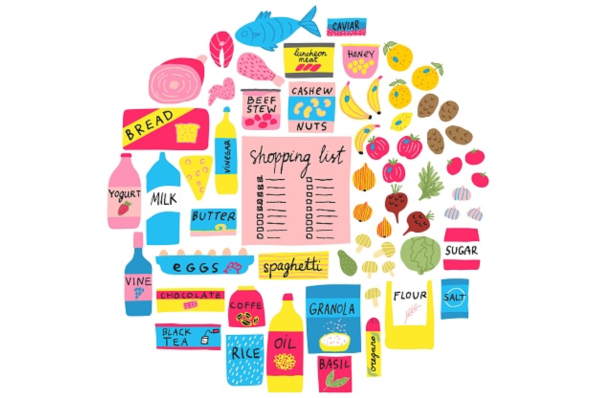 CAVIAR
luncheon
meat
HONEY
BEEF
STEW
CASHEW
NUTS
BREAD
VINEGAR
shopping list
YOGURT
MILK
BUTTER
eGGS
spaghetti
SUGAR
VINE
CHOCOLATE
COFFE
GRANOLA
FLOUR
SALT
BLACK
TEA
RICE
OIL
BASIL
oregano